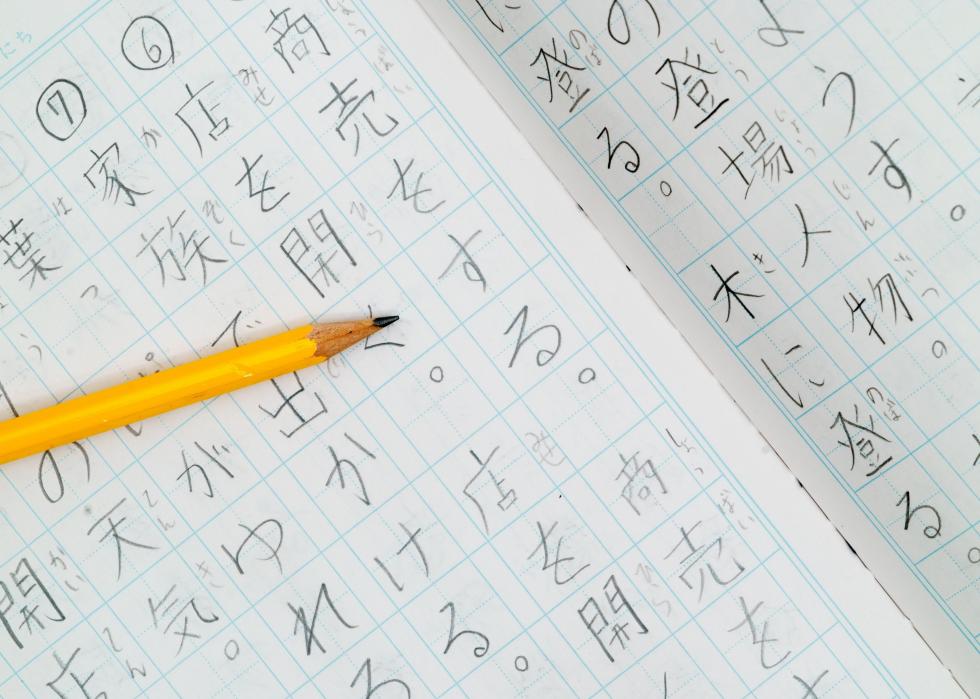 ようす。
の登場人物。
に登る。 木に登る。
商売をする。 商売を
⑥ 店を開く。 店を開
⑦ 家族で出かける。
葉っぱがゆれる
の天気。
開店